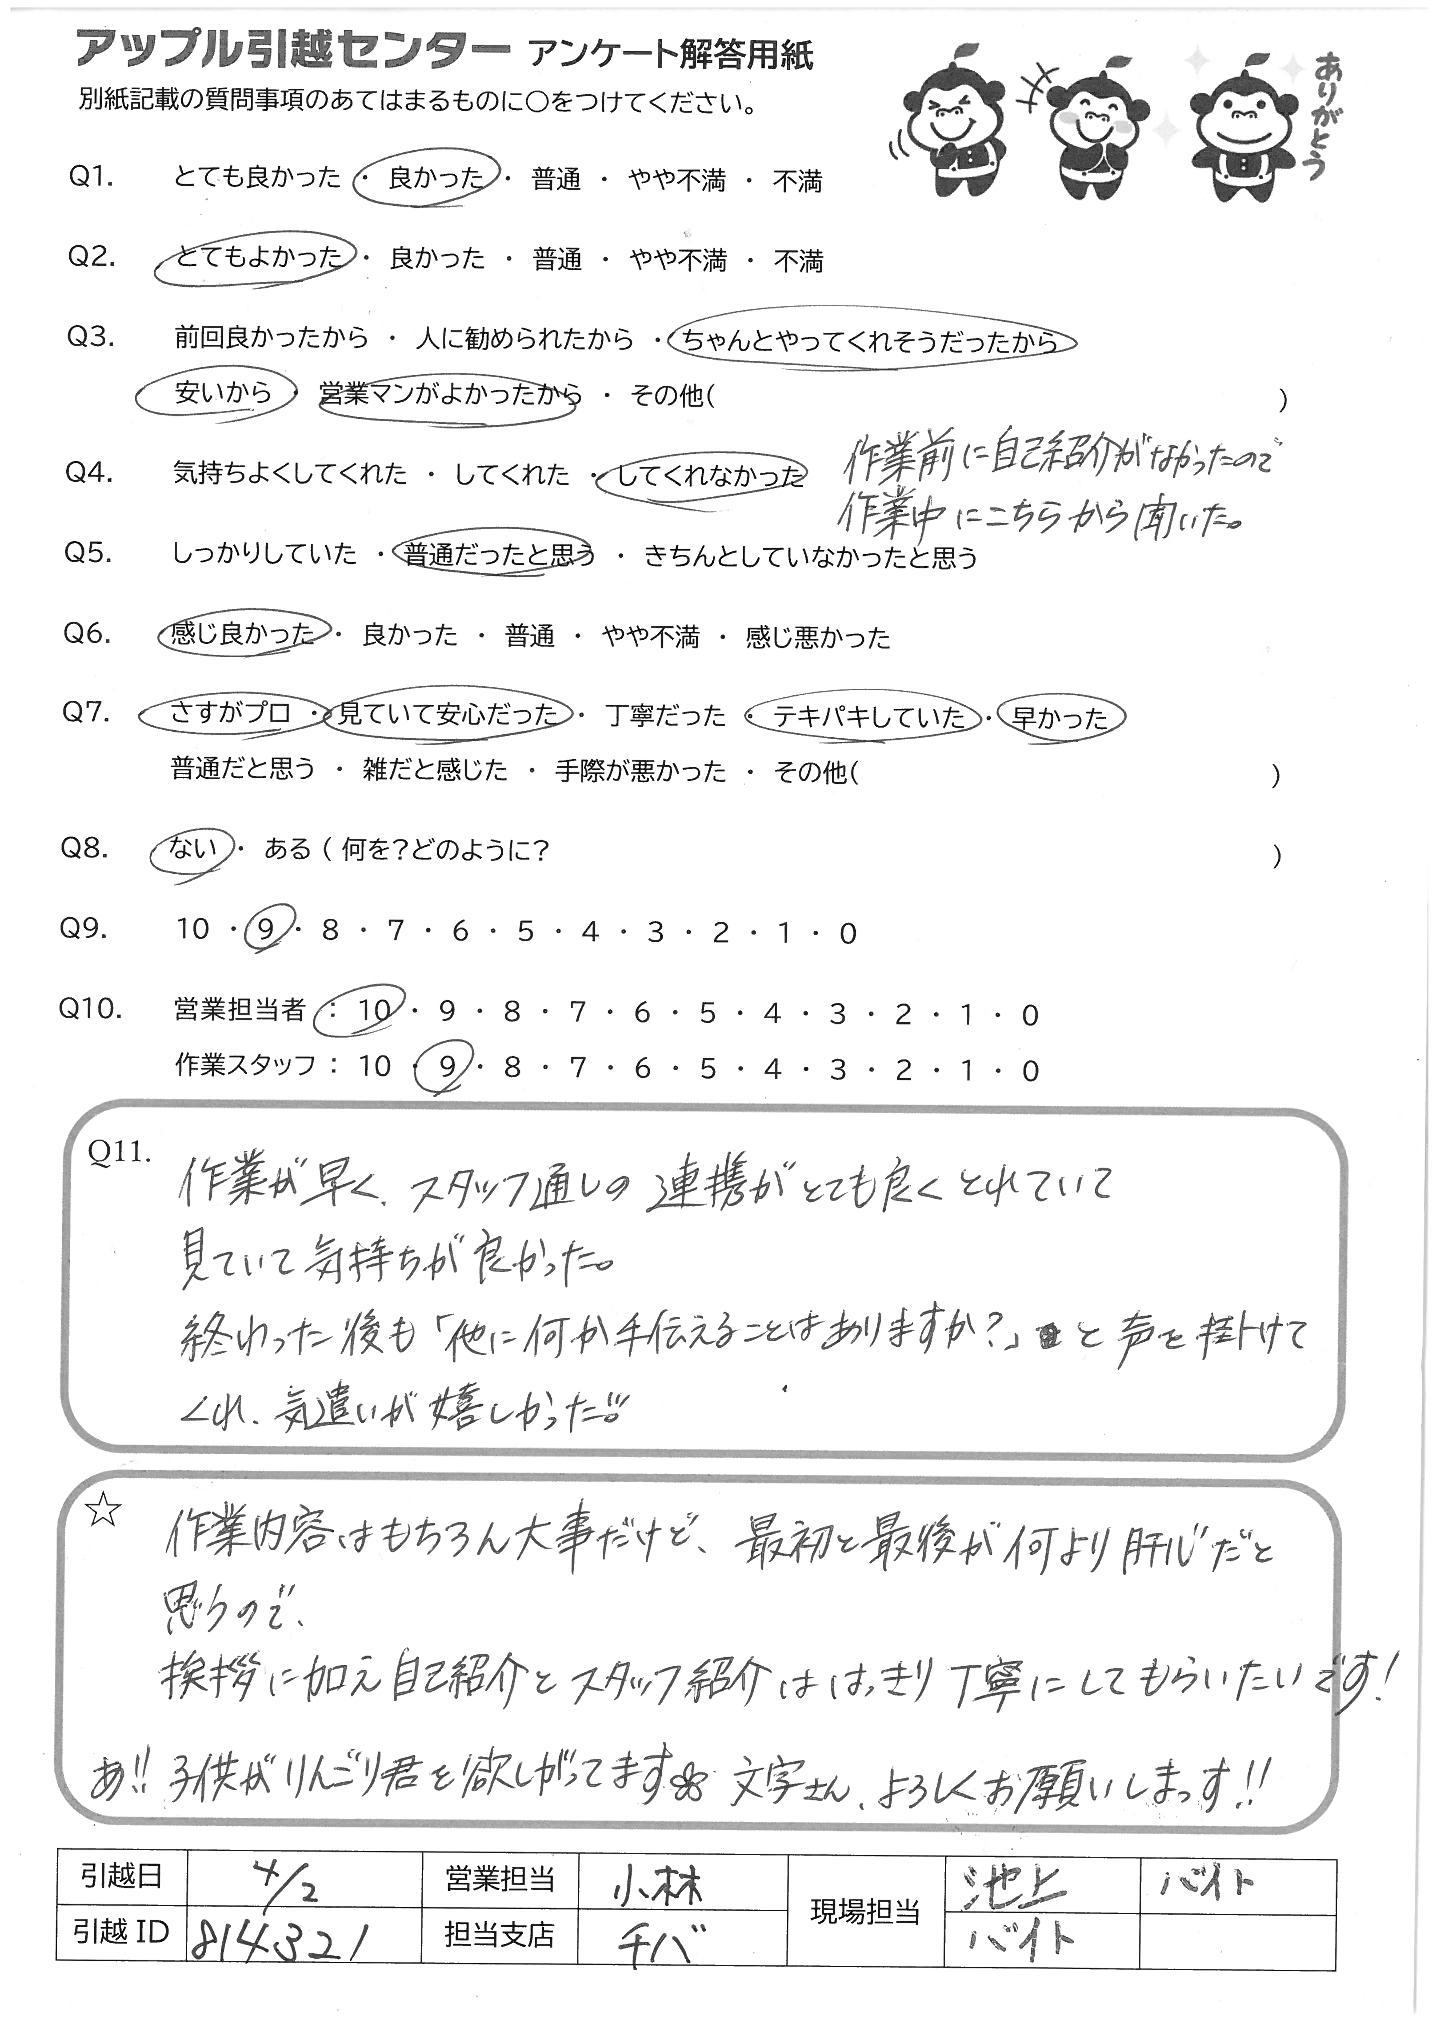 アップル引越センター アンケート解答用紙
別紙記載の質問事項のあてはまるものに○をつけてください。
ありがとう
Q1. とても良かった ・ 良かった ・ 普通 ・ やや不満 ・ 不満
Q2. とてもよかった ・ 良かった ・ 普通 ・ やや不満 ・ 不満
Q3. 前回良かったから ・ 人に勧められたから ・ ちゃんとやってくれそうだったから
安いから ・ 営業マンがよかったから ・ その他( )
Q4. 気持ちよくしてくれた ・ してくれた ・ してくれなかった
作業前に自己紹介がなかったので
作業中にこちらから聞いた。
Q5. しっかりしていた ・ 普通だったと思う ・ きちんとしていなかったと思う
Q6. 感じ良かった ・ 良かった ・ 普通 ・ やや不満 ・ 感じ悪かった
Q7. さすがプロ ・ 見ていて安心だった ・ 丁寧だった ・ テキパキしていた ・ 早かった
普通だと思う ・ 雑だと感じた ・ 手際が悪かった ・ その他( )
Q8. ない ・ ある ( 何を？どのように？ )
Q9. 10 ・ 9 ・ 8 ・ 7 ・ 6 ・ 5 ・ 4 ・ 3 ・ 2 ・ 1 ・ 0
Q10. 営業担当者 : 10 ・ 9 ・ 8 ・ 7 ・ 6 ・ 5 ・ 4 ・ 3 ・ 2 ・ 1 ・ 0
作業スタッフ : 10 ・ 9 ・ 8 ・ 7 ・ 6 ・ 5 ・ 4 ・ 3 ・ 2 ・ 1 ・ 0
Q11. 作業が早く、スタッフ通しの連携がとても良くとれていて
見ていて気持ちが良かった。
終わった後も「他に何か手伝えることはありますか？」と声を掛けて
くれ、気遣いが嬉しかった!!。
☆ 作業内容はもちろん大事だけど、最初と最後が何より肝心だと
思うので、
挨拶に加え自己紹介とスタッフ紹介ははっきり丁寧にしてもらいたいです！
あ!! 子供がりんごり君を欲しがってます 文字さん、よろしくお願いしまっす!!
引越日 4/2 営業担当 小林 現場担当 池上 バイト
引越 ID 814321 担当支店 チバ バイト